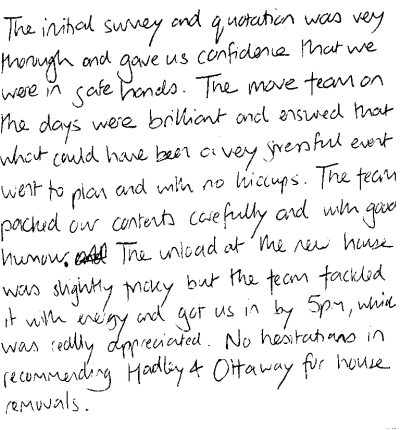 The initial survey and quotation was very
thorough and gave us confidence that we
were in safe hands. The move team on
the days were brilliant and ensured that
what could have been a very stressful event
went to plan and with no hiccups. The team
packed our contents carefully and with good
humour. The unload at the new house
was slightly tricky but the team tackled
it with energy and got us in by 5pm, which
was really appreciated. No hesitations in
recommending Hadley & Ottaway for house
removals.